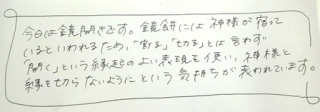 今日は鏡開きです。鏡餅には神様が宿って
いるといわれるため、「割る」「切る」とは言わず
「開く」という縁起のよい表現を使い、神様と
縁を切らないようにという気持ちが表われています。